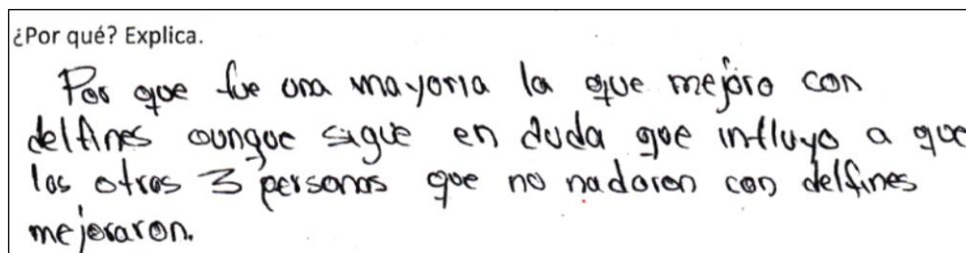 ¿Por qué? Explica.
Por que fue una mayoria la que mejoro con
delfines aunque sigue en duda que influyo a que
las otras 3 personas que no nadaron con delfines
mejoraron.